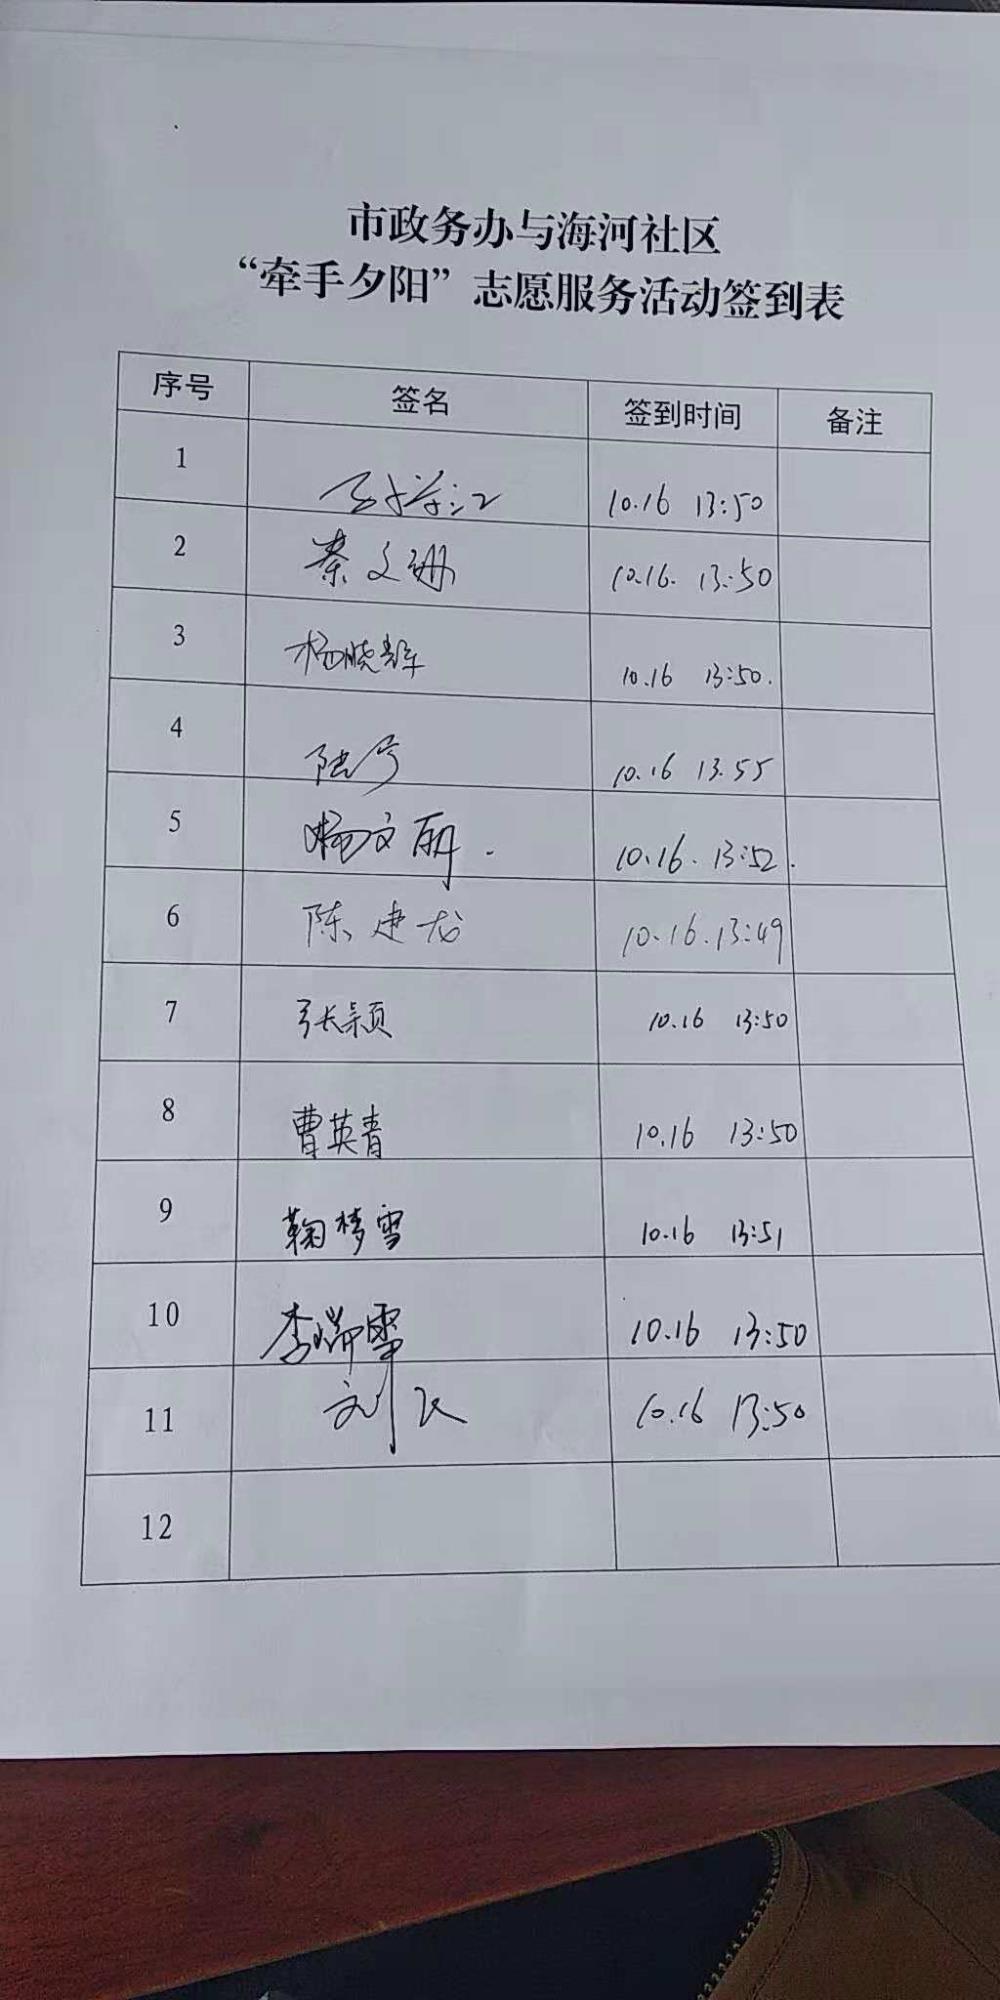 市政务办与海河社区
“牵手夕阳”志愿服务活动签到表
序号 签名 签到时间 备注
1 10.16 13:50
2 秦文珊 10.16. 13:50
3 杨晓辉 10.16 13:50.
4 陆 10.16 13.55
5 杨文丽. 10.16. 13:52.
6 陈建龙 10.16.13:49
7 张颖 10.16 13:50
8 曹英青 10.16 13:50
9 鞠梦雪 10.16 13:51
10 李瑞雪 10.16 13:50
11 刘 10.16 13:50
12